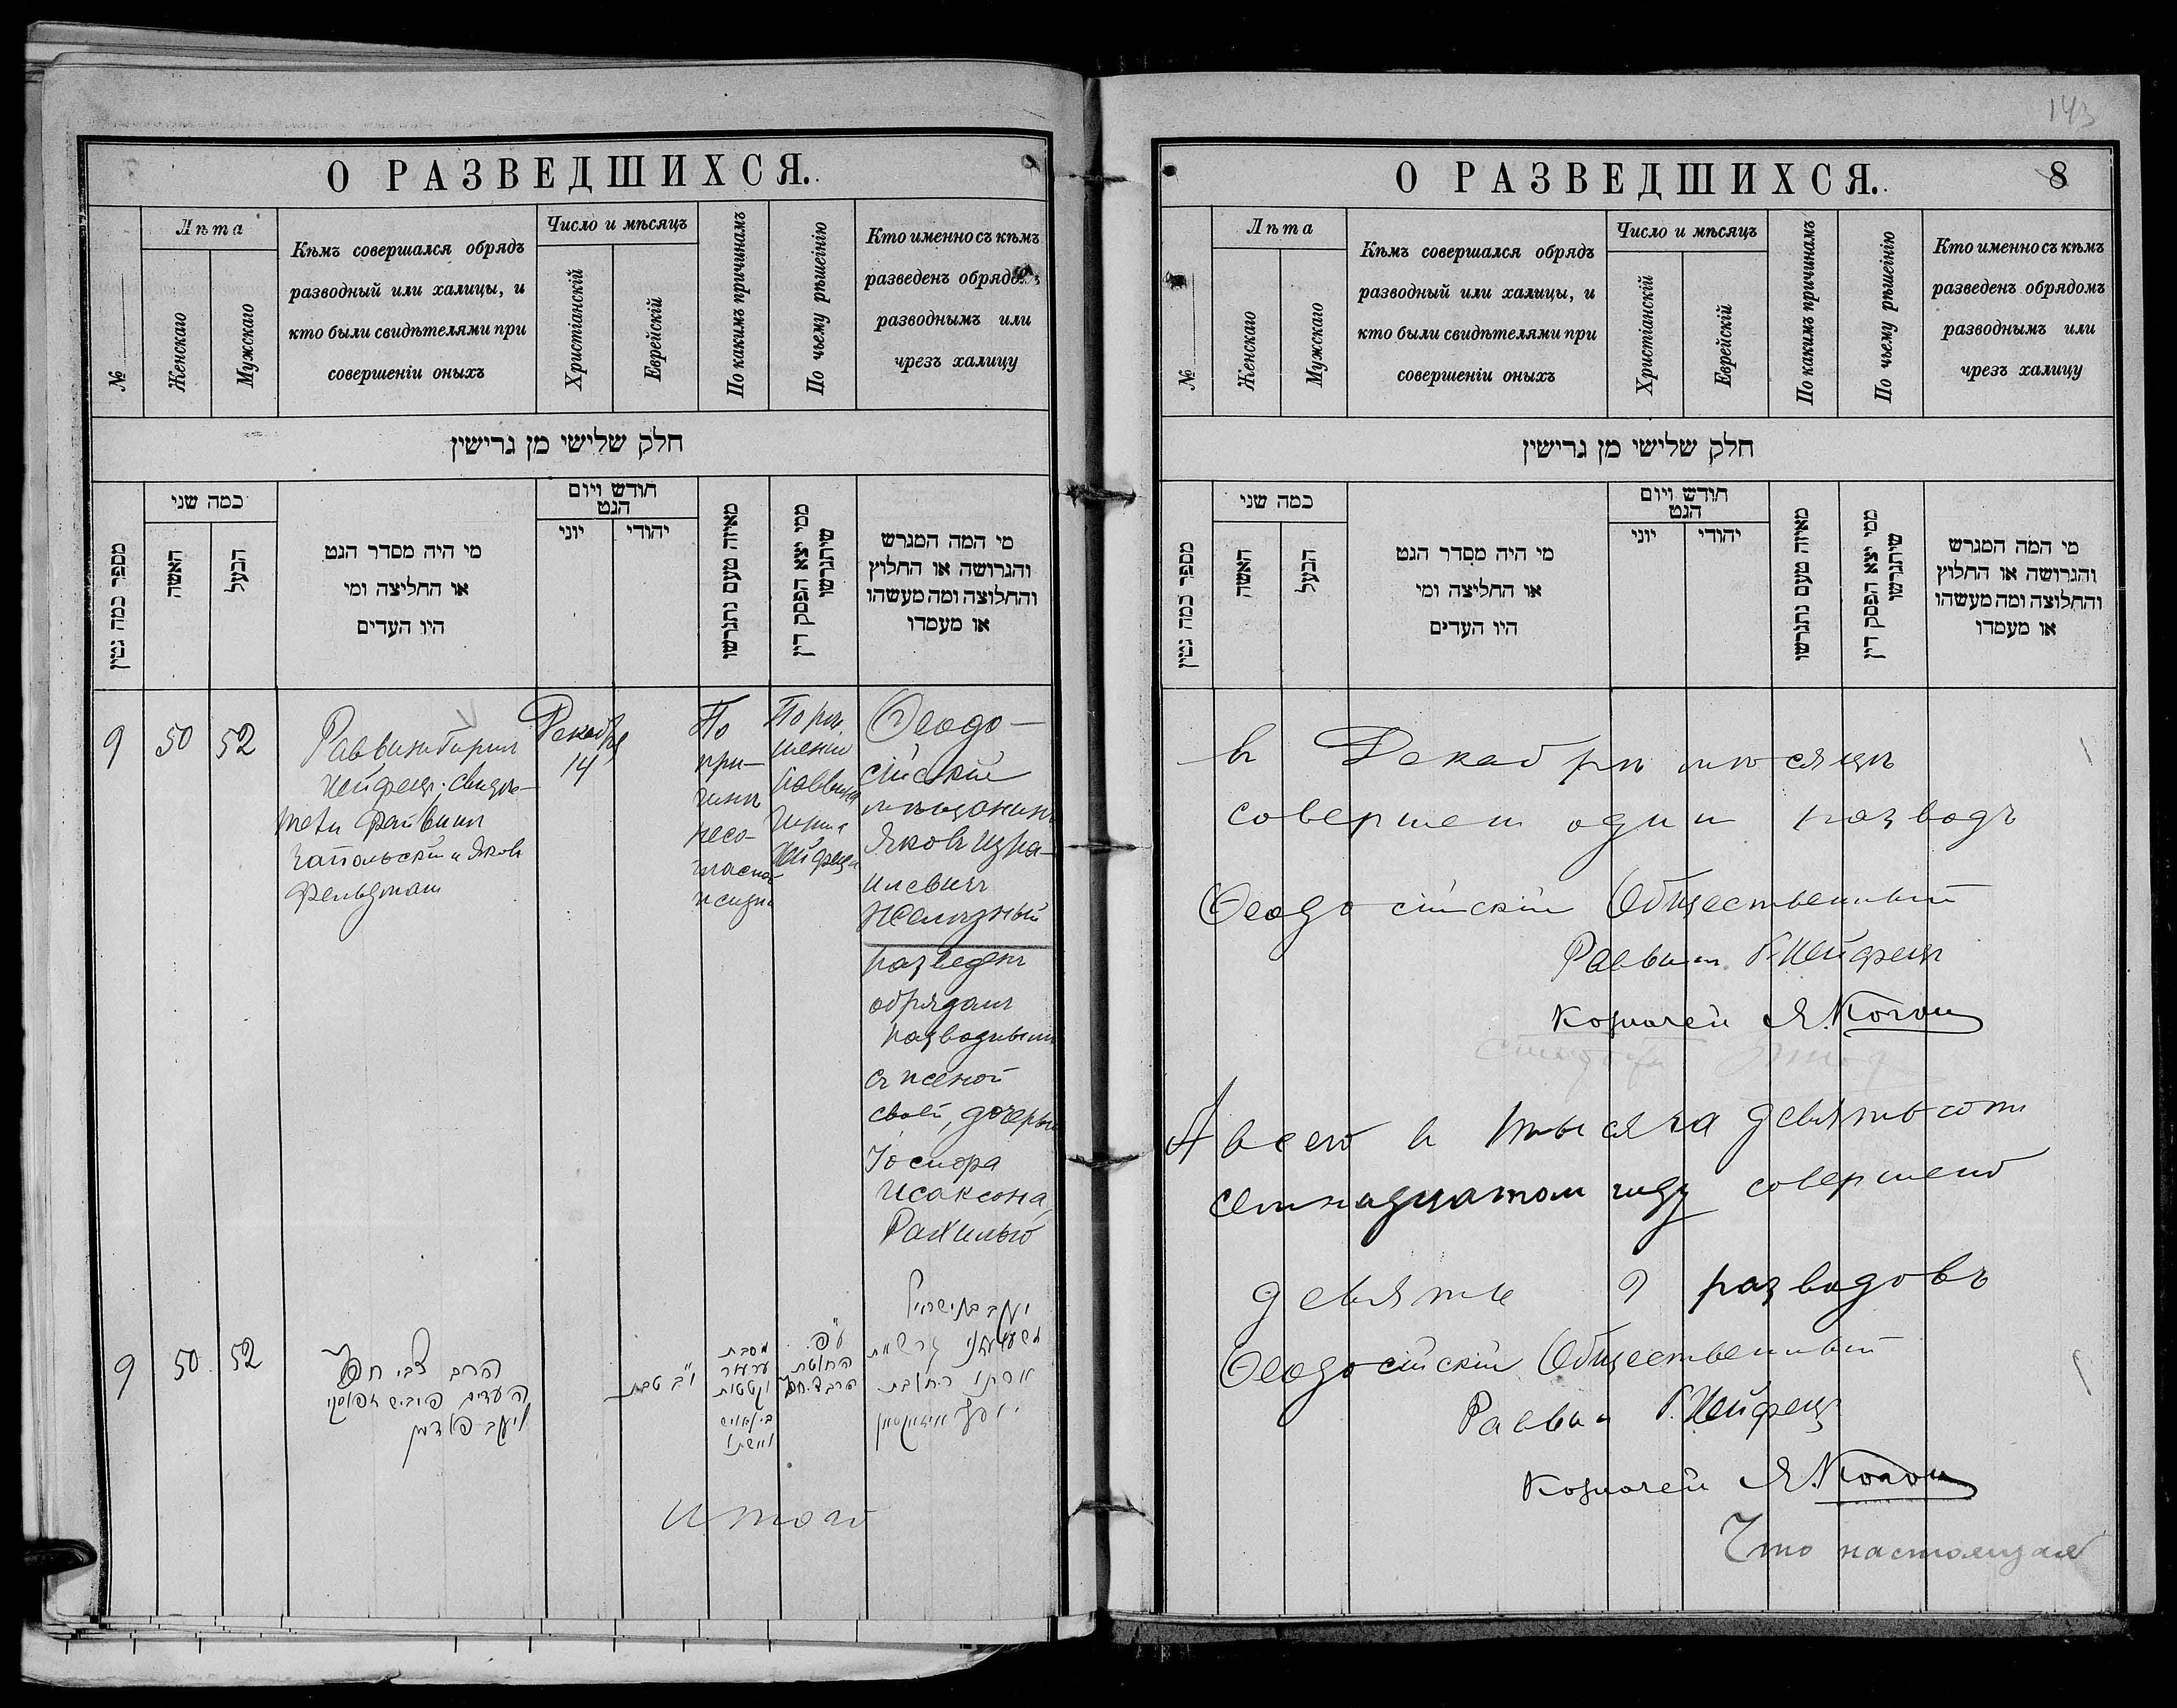 О РАЗВЕДШИХСЯ.
№
Лѣта
Женскаго
Мужскаго
Кѣмъ совершался обрядъ
разводный или халицы, и
кто были свидѣтелями при
совершеніи оныхъ
Число и мѣсяцъ
Христіанскій
Еврейскій
По какимъ причинамъ
По чьему рѣшенію
Кто именно съ кѣмъ
разведенъ обрядомъ
разводнымъ или
чрезъ халицу
חלק שלישי מן גרישין
מספר כמה גטין
כמה שני
האשה
הבעל
מי היה מסדר הגט
או החליצה ומי
היו העדים
חודש ויום
הגט
יוני
יהודי
מאיזה טעם נתגרשו
ממי יצא הפסק דין
שיתגרשו
מי המה המגרש
והגרושה או החלוץ
והחלוצה ומה מעשהו
או מעמדו
9
50
52
Раввинъ Гиршъ
Хейфецъ; свидѣ-
тели Файвишъ
и Яковъ
Фельдман
Декабря
14
По
при-
чинѣ
несо-
гласной
жизни
По рѣ-
шенію
Раввина
Гирша
Хейфеца
Ѳеодо-
сійскій
мѣщанинъ
Яковъ Изра-
илевичъ
Желѣзный
разведенъ
обрядомъ
разводнымъ
съ женой
своей, дочерью
Іосифа
Исаксона,
Рахилью
9
50
52
הרב צבי חפץ
העדים פייביש
ויעקב פעלדמן
י"ב טבת
מסבת
וקטטות
בין איש
ואשתו
ע"פ
החלטת
הרב צ. חפץ
יעקב בן ישראל
אשתו
יוסף
Итого
143
О РАЗВЕДШИХСЯ.
8
№
Лѣта
Женскаго
Мужскаго
Кѣмъ совершался обрядъ
разводный или халицы, и
кто были свидѣтелями при
совершеніи оныхъ
Число и мѣсяцъ
Христіанскій
Еврейскій
По какимъ причинамъ
По чьему рѣшенію
Кто именно съ кѣмъ
разведенъ обрядомъ
разводнымъ или
чрезъ халицу
חלק שלישי מן גרישין
מספר כמה גטין
כמה שני
האשה
הבעל
מי היה מסדר הגט
או החליצה ומי
היו העדים
חודש ויום
הגט
יוני
יהודי
מאיזה טעם נתגרשו
ממי יצא הפסק דין
שיתגרשו
מי המה המגרש
והגרושה או החלוץ
והחלוצה ומה מעשהו
או מעמדו
въ Декабрѣ мѣсяцѣ
совершен один разводъ
Ѳеодосійскій Общественный
Раввин Г. Хейфецъ
Казначей Я. Коган
А всего въ тысяча девятьсот
семнадцатом году совершено
девять 9 разводовъ
Ѳеодосійскій Общественный
Раввин Г. Хейфецъ
Казначей Я. Коган
Что настоящая